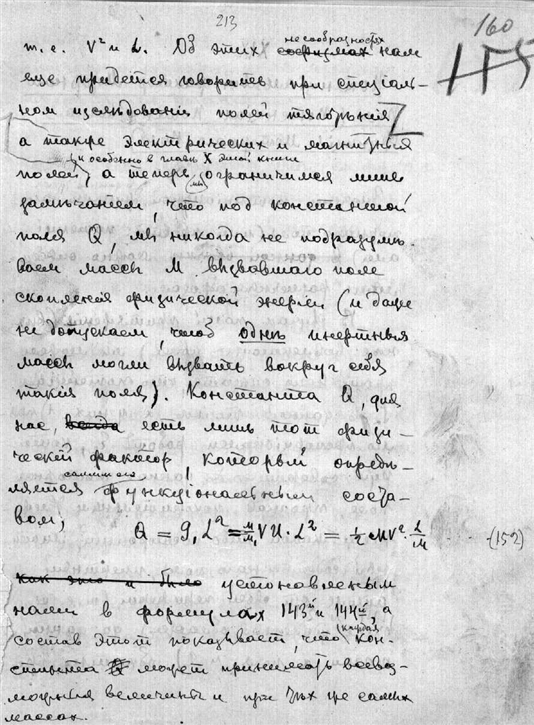 213
160
155
т. е. V² и L. Об этих несообразностях нам
еще придется говорить при спецiаль-
ном изслѣдованiи полей тяготѣнiя
а также электрических и магнитных
и особенно в главѣ X этой книги
полей, а теперь мы ограничимся лишь
замѣчанiем, что под константой
поля Q, мы никогда не подразумѣ-
ваем массы M вызвавшаго поле
скопленiя физической энергiи (и даже
не допускаем, чтоб однѣ инертныя
массы могли вызвать вокруг себя
такiя поля). Константа Q, для
нас, есть лишь тот физи-
ческiй фактор, который опредѣ-
ляется самим его функцiональным соста-
вом;
Q = g₁L² = M/M₁ VU · L² = ½ MV² · L/M ..... (152)
как это и было установленным
нами в формулах 143й и 144й, а
состав этот показывает, что каждая кон-
станта может принимать всевоз-
можныя величины и при тѣх же самых
массах.